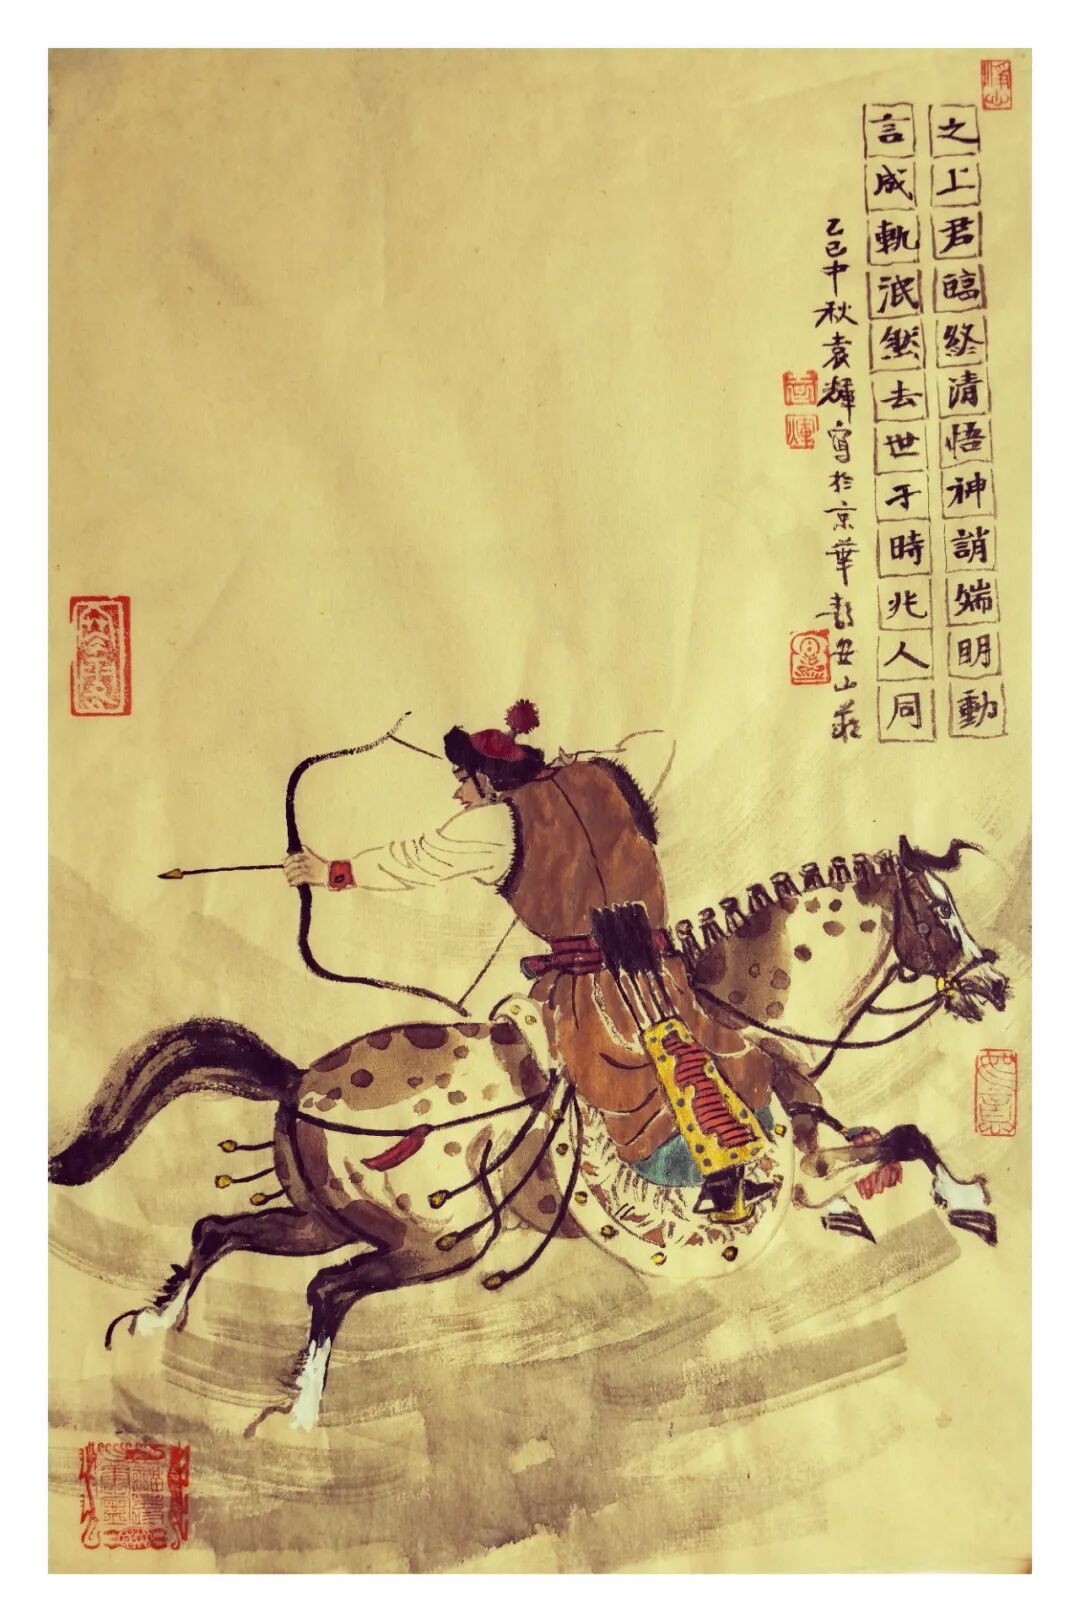 之上君臨終清悟神誚端明動
言成軌泯然去世于時兆人同
乙巳中秋袁輝寫於京華安山莊